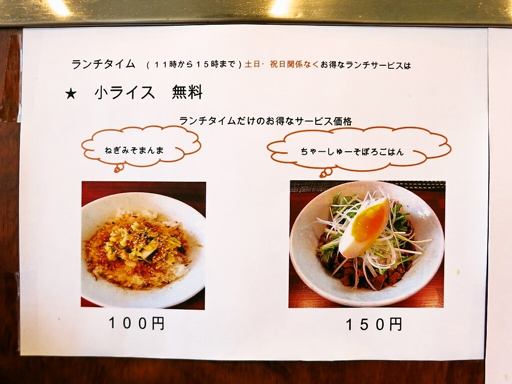 ランチタイム （１１時から１５時まで）土日・祝日関係なくお得なランチサービスは
★ 小ライス 無料
ランチタイムだけのお得なサービス価格
ねぎみそまんま
ちゃーしゅーそぼろごはん
１００円
１５０円